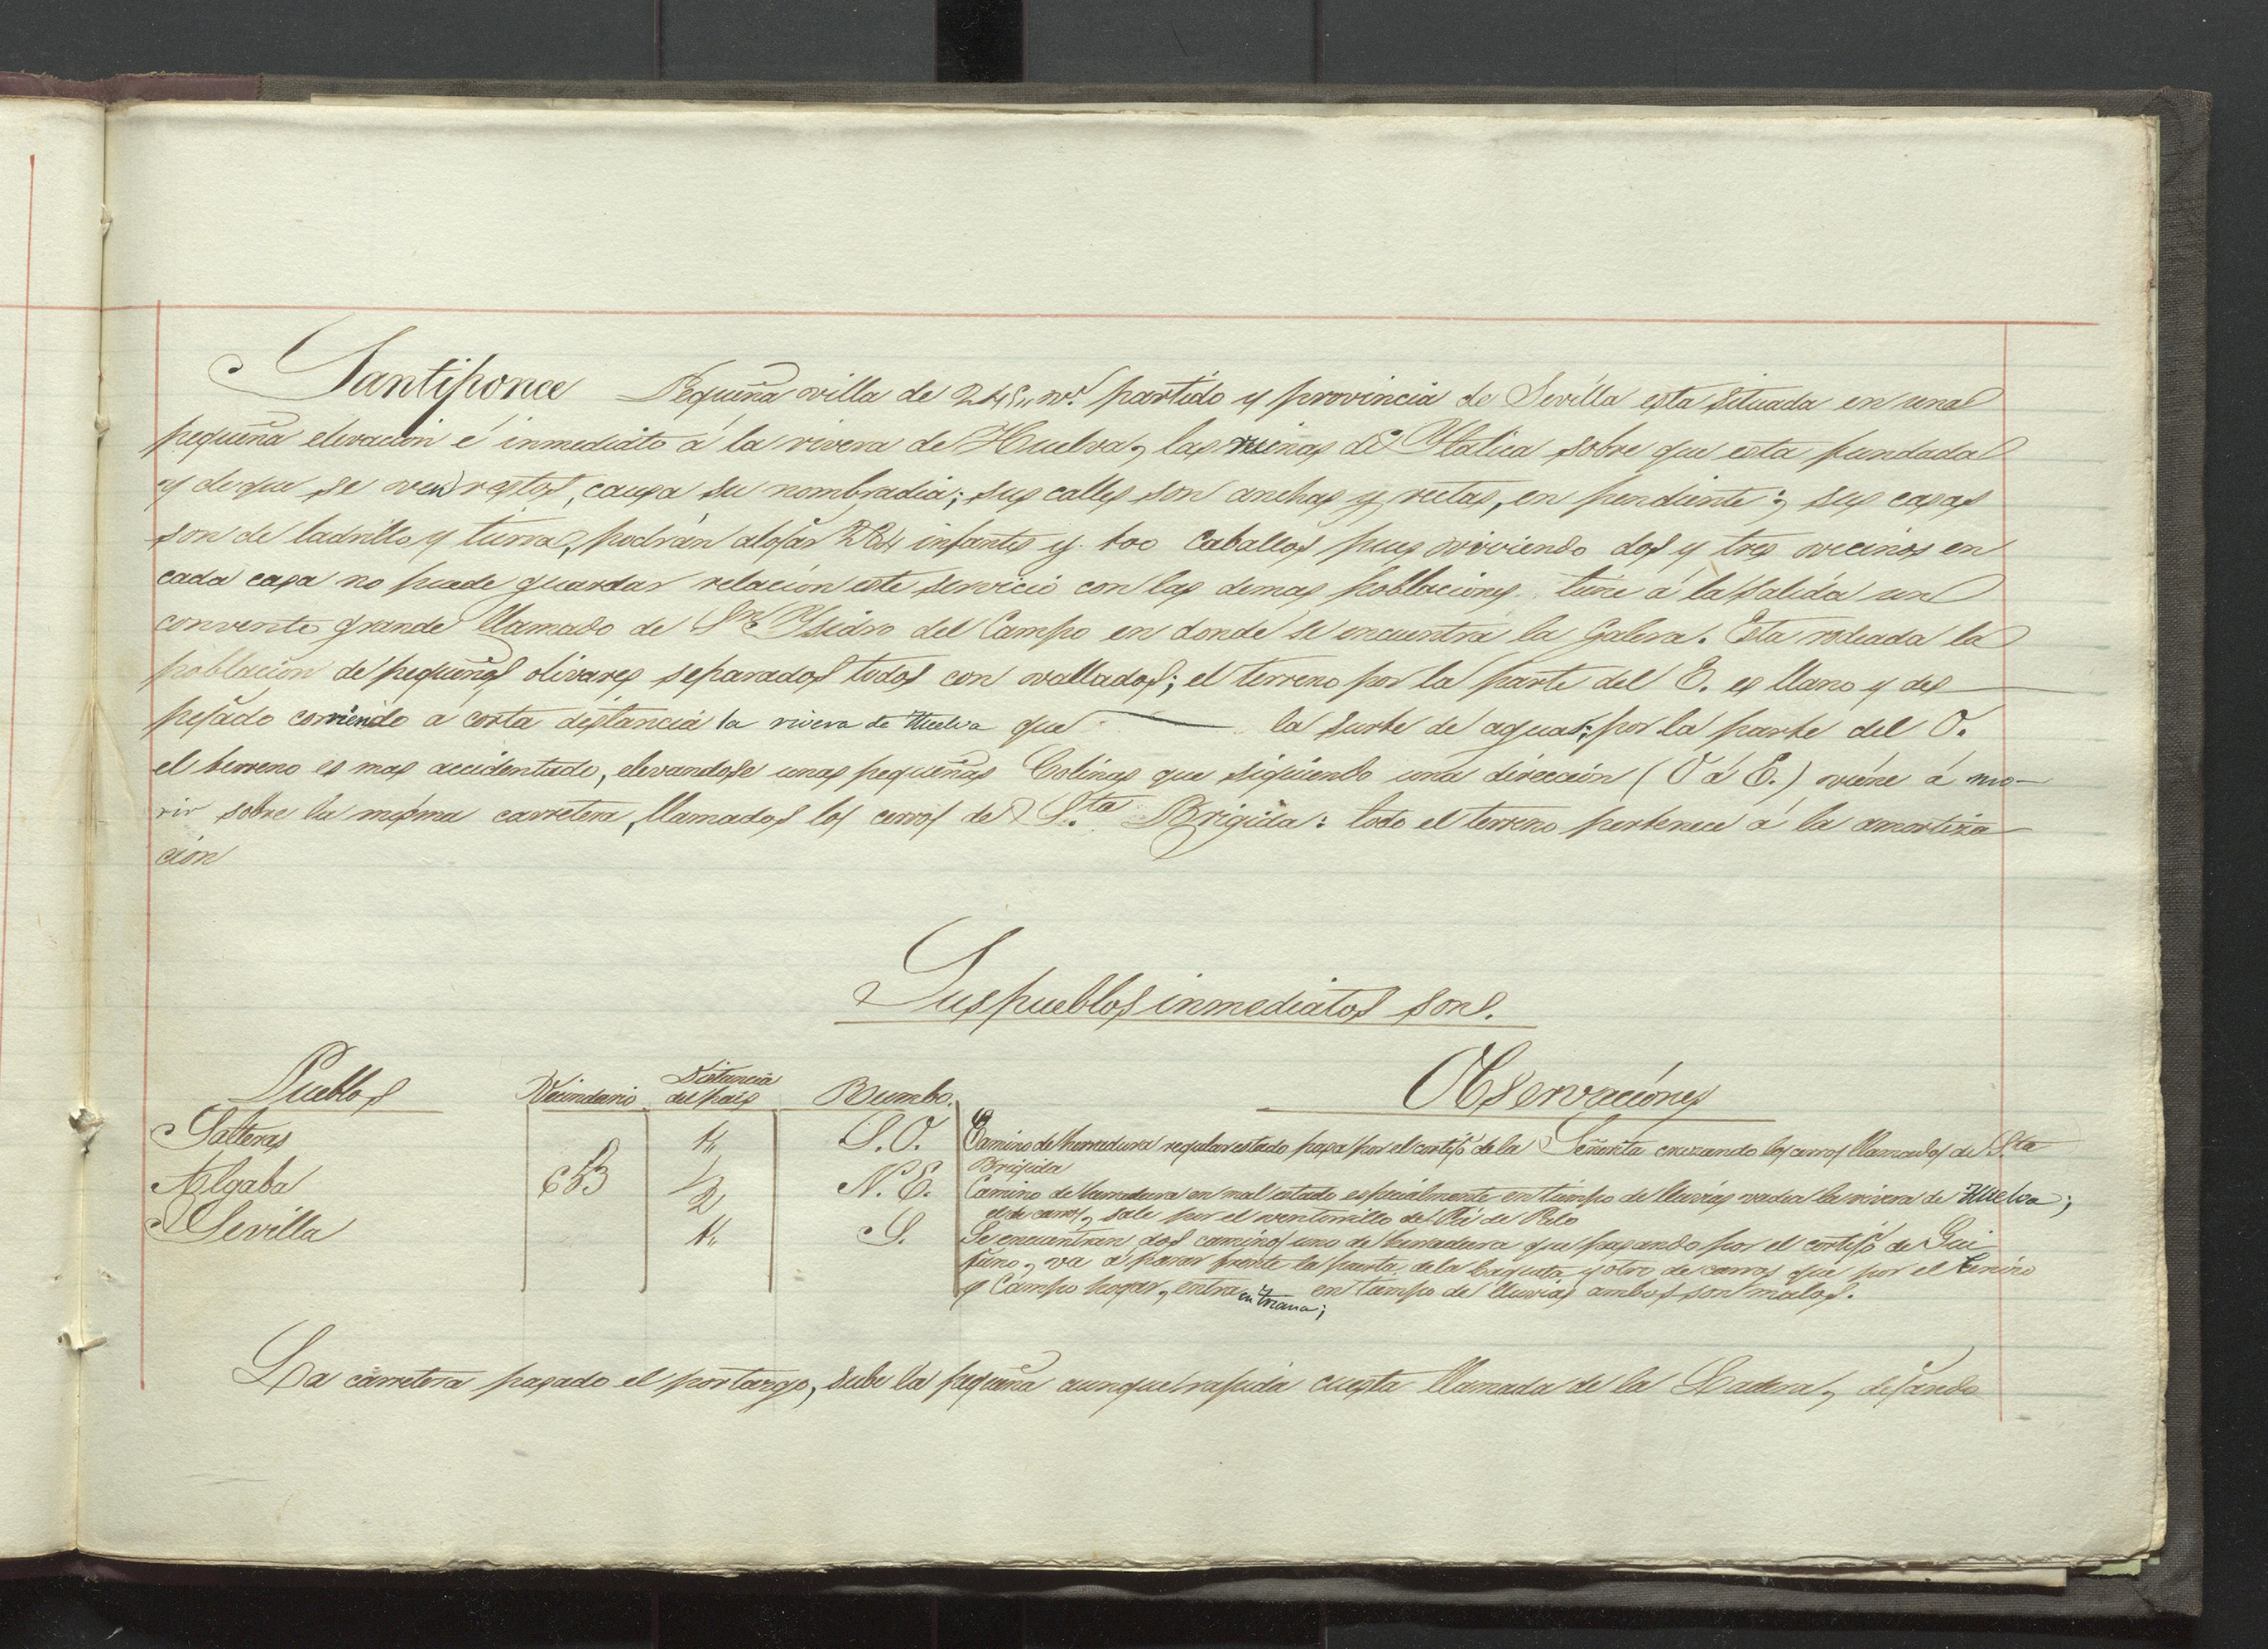 Santiponce Pequeña villa de 245,, vs. partido y provincia de Sevilla esta situada en una
pequeña elevacion é inmediato á la rivera de Huelva, las ruinas de Ytalica sobre que esta fundada
y de que se ven restos, causa su nombradia; sus calles son anchas y rectas, en pendiente; sus casas
son de ladrillo y tierra, podrán alojar infantes y 100 Caballos pues viviendo dos y tres vecinos en
cada casa no puede guardar relacion este servicio con las demas poblaciones. tiene á la salida un
convento grande llamado de Sn. Ysidro del Campo en donde se encuentra la Galera. Esta rodeada la
poblacion de pequeños olivares separados todos con vallados; el terreno por la parte del E. es llano y des
pejado corriendo á corta distancia la rivera de Huelva que la surte de aguas; por la parte del O.
el terreno es mas accidentado, elevandose unas pequeñas Colinas que siguiendo una dirección (O á E.) viene á mo-
rir sobre la misma carretera, llamados los cerros de Sta. Brigida: todo el terreno pertenece á la amortiza
cion
Sus pueblos inmediatos son.
Pueblos Vecindario Distancia del pais Rumbo. Observaciones
Salteras 1,, S.O. Camino de herradura regular estado pasa por el cortijo de la Señorita cruzando los cerros llamados de Sta
Brigida
Algaba 653 1/2 N.E. Camino de herradura en mal estado especialmente en tiempo de lluvias vadea la rivera de Huelva;
el de carros, sale por el ventorrillo del Pié de Palo
Sevilla 1,, S. Se encuentran dos caminos uno de herradura que pasando por el cortijo de Gui
juno, va á parar frente la puerta de la barqueta y otro de carros que por el
y Campo hogar, entra en Triana; en tiempo de lluvias ambos son malos.
La carretera pasado el portazgo, sube la pequeña aunque rapida cuesta llamada de la Ladera, dejando